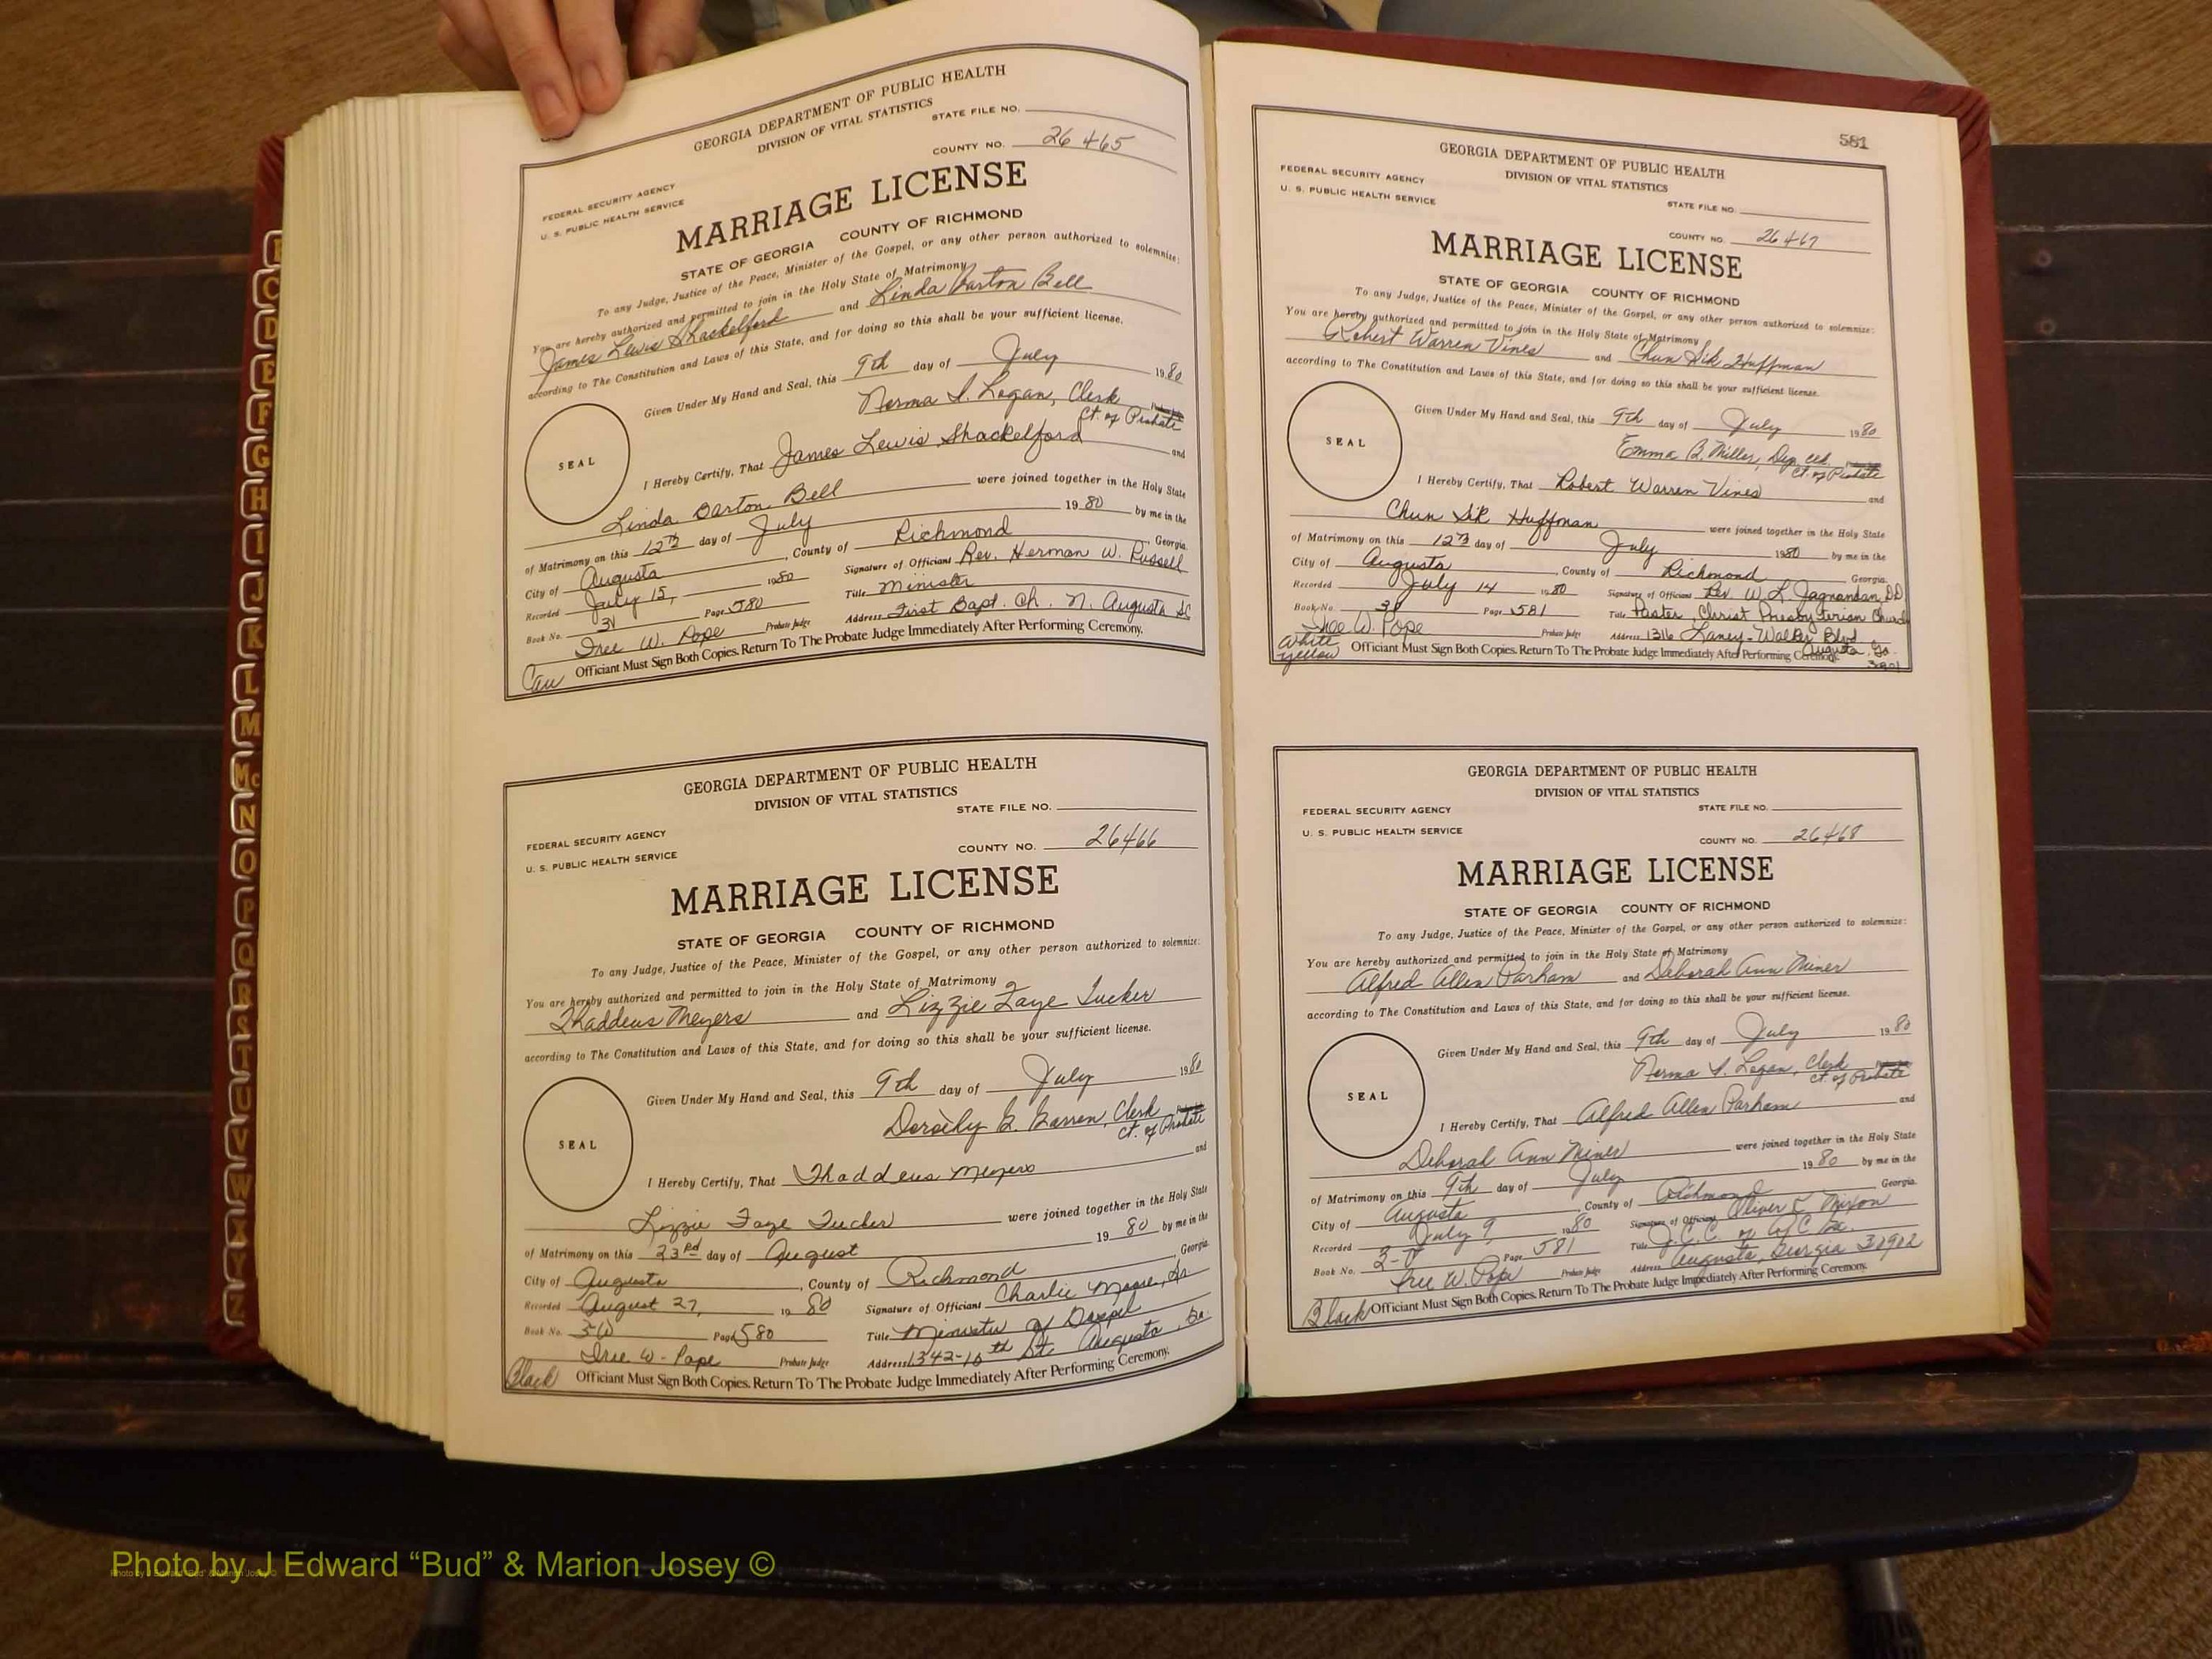 GEORGIA DEPARTMENT OF PUBLIC HEALTH
DIVISION OF VITAL STATISTICS
STATE FILE NO.
COUNTY NO. 26 465
FEDERAL SECURITY AGENCY
U. S. PUBLIC HEALTH SERVICE
MARRIAGE LICENSE
STATE OF GEORGIA COUNTY OF RICHMOND
To any Judge, Justice of the Peace, Minister of the Gospel, or any other person authorized to solemnize:
You are hereby authorized and permitted to join in the Holy State of Matrimony
James Lewis Shackelford and Linda Barton Bell
according to The Constitution and Laws of this State, and for doing so this shall be your sufficient license.
Given Under My Hand and Seal, this 9th day of July 1980
Norma S. Logan, Clerk
Ct. of Probate
SEAL
I Hereby Certify, That James Lewis Shackelford and
Linda Barton Bell were joined together in the Holy State
of Matrimony on this 12th day of July 1980 by me in the
City of Augusta, County of Richmond Georgia.
Recorded July 15, 1980 Signature of Officiant Rev. Herman W. Russell
Book No. 3V Page 580 Title Minister
Iree W. Pope Probate Judge Address First Bapt. Ch. N. Augusta SC
Cau Officiant Must Sign Both Copies. Return To The Probate Judge Immediately After Performing Ceremony.
GEORGIA DEPARTMENT OF PUBLIC HEALTH
DIVISION OF VITAL STATISTICS
STATE FILE NO.
FEDERAL SECURITY AGENCY
COUNTY NO. 26466
U. S. PUBLIC HEALTH SERVICE
MARRIAGE LICENSE
STATE OF GEORGIA COUNTY OF RICHMOND
To any Judge, Justice of the Peace, Minister of the Gospel, or any other person authorized to solemnize:
You are hereby authorized and permitted to join in the Holy State of Matrimony
Thaddeus Meyers and Lizzie Faye Tucker
according to The Constitution and Laws of this State, and for doing so this shall be your sufficient license.
Given Under My Hand and Seal, this 9th day of July 1980
Dorothy G. Clerk
Ct. of Probate
SEAL
I Hereby Certify, That Thaddeus Meyers and
Lizzie Faye Tucker were joined together in the Holy State
of Matrimony on this 23rd day of August 1980 by me in the
City of Augusta, County of Richmond Georgia.
Recorded August 27, 1980 Signature of Officiant Charlie Moore, Sr.
Book No. 3W Page 580 Title Minister of Gospel
Iree W. Pope Probate Judge Address 1342-10th St. Augusta, Ga.
Black Officiant Must Sign Both Copies. Return To The Probate Judge Immediately After Performing Ceremony.
581
GEORGIA DEPARTMENT OF PUBLIC HEALTH
DIVISION OF VITAL STATISTICS
FEDERAL SECURITY AGENCY
U. S. PUBLIC HEALTH SERVICE
STATE FILE NO.
COUNTY NO. 26467
MARRIAGE LICENSE
STATE OF GEORGIA COUNTY OF RICHMOND
To any Judge, Justice of the Peace, Minister of the Gospel, or any other person authorized to solemnize:
You are hereby authorized and permitted to join in the Holy State of Matrimony
Robert Warren Vines and Chun Sik Huffman
according to The Constitution and Laws of this State, and for doing so this shall be your sufficient license.
Given Under My Hand and Seal, this 9th day of July 1980
Emma B. Miller, Dep. Clk.
Ct. of Probate
SEAL
I Hereby Certify, That Robert Warren Vines and
Chun Sik Huffman were joined together in the Holy State
of Matrimony on this 12th day of July 1980 by me in the
City of Augusta, County of Richmond Georgia.
Recorded July 14 1980 Signature of Officiant Rev. W. L. Jagnandan DD
Book No. Page 581 Title Pastor, Christ Presbyterian Church
Iree W. Pope Probate Judge Address 1316 Laney-Walker Blvd
Augusta, Ga.
30901
White
Yellow
Officiant Must Sign Both Copies. Return To The Probate Judge Immediately After Performing Ceremony.
GEORGIA DEPARTMENT OF PUBLIC HEALTH
DIVISION OF VITAL STATISTICS
FEDERAL SECURITY AGENCY STATE FILE NO.
U. S. PUBLIC HEALTH SERVICE
COUNTY NO. 26468
MARRIAGE LICENSE
STATE OF GEORGIA COUNTY OF RICHMOND
To any Judge, Justice of the Peace, Minister of the Gospel, or any other person authorized to solemnize:
You are hereby authorized and permitted to join in the Holy State of Matrimony
Alfred Allen Parham and Deborah Ann Miner
according to The Constitution and Laws of this State, and for doing so this shall be your sufficient license.
Given Under My Hand and Seal, this 9th day of July 1980
Norma S. Logan, Clerk
Ct. of Probate
SEAL
I Hereby Certify, That Alfred Allen Parham and
Deborah Ann Miner were joined together in the Holy State
of Matrimony on this 9th day of July 1980 by me in the
City of Augusta County of Richmond Georgia.
Recorded July 9 1980 Signature of Officiant Oliver L. Mixon
Book No. 3-V Page 581 Title
Iree W. Pope Probate Judge Address Augusta, Georgia 30902
Black Officiant Must Sign Both Copies. Return To The Probate Judge Immediately After Performing Ceremony.
C
D
E
F
G
H
I
J
K
L
M
Mc
N
O
P
Q
R
S
T
U
V
W
X
Y
Z
Photo by J Edward “Bud” & Marion Josey ©